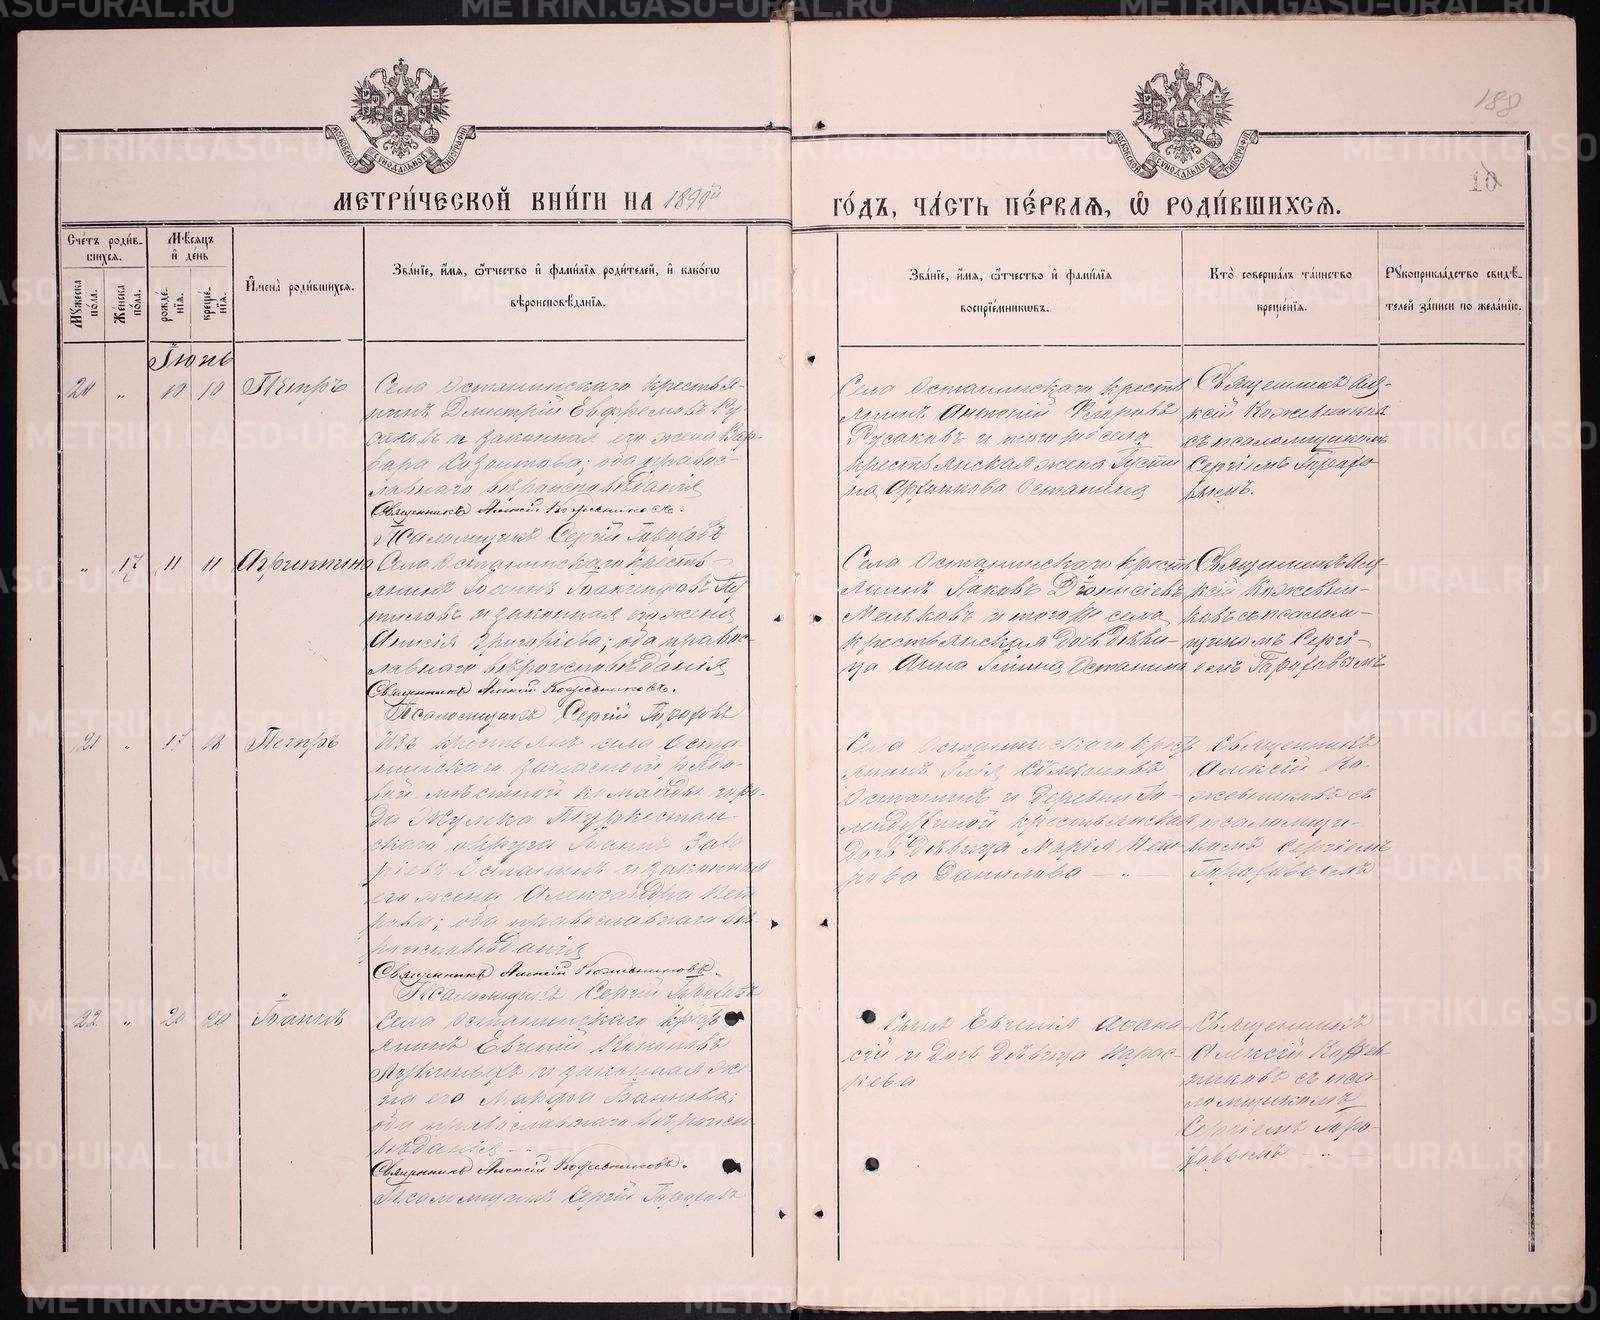 188
10
МОСКОВСКОЙ СѴНОДАЛЬНОЙ ТИПОГРАФІИ
МОСКОВСКОЙ СѴНОДАЛЬНОЙ ТИПОГРАФІИ
МЕТРИ́ЧЕСКОЙ КНИ́ГИ НА 1899й
ГО́ДЪ, ЧА́СТЬ ПЕ́РВАЯ, Ѡ҆ РОДИ́ВШИХСЯ.
Сче́тъ роди́в-
шихся.
Мꙋжеска по́ла.
Же́нска по́ла.
Мѣ́сяцъ
и҆ де́нь
рожде́нїя.
креще́нїя.
И҆мена̀ роди́вшихся.
Зва́нїе, и҆́мя, ѻ҆́тчество и҆ фами́лїя роди́телей, и҆ како́гѡ
вѣроисповѣ́данїя.
Зва́нїе, и҆́мя, ѻ҆́тчество и҆ фами́лїя
воспрїе́мникѡвъ.
Кто̀ соверша́лъ та́инство
креще́нїя.
Рꙋкоприкла́дство свидѣ́-
телей за́писи по жела́нїю.
Іюнь
20 „ 10 10 Петръ
Села Останинскаго крестья-
нинъ Дмитрій Евфремовъ Ру-
саковъ и законная его жена Вар-
вара Созонтова; оба правос-
лавнаго вѣроисповѣданія
Священникъ Алексій Кожевниковъ.
Псаломщикъ Сергій
Села Останинскаго кресть
янинъ Антоній Русаковъ и того же села
крестьянская жена Іусти
на Архипова Останина
Священникъ Але-
ксій Кожевниковъ
съ псаломщикомъ
Сергіемъ
„ 17 11 11 Агриппина
Села Останинскаго кресть-
янинъ Іоаннъ Іоакимовъ Пу
тиловъ и законная его жена
Анисія Григоріева; оба правос-
лавнаго вѣроисповѣданія
Священникъ Алексій Кожевниковъ.
Псаломщикъ Сергій
Села Останинскаго кресть
янинъ Іаковъ Діонисіевъ
Мельковъ и того же села
крестьянская дочь дѣви-
ца Анна Останина
Священникъ Але-
ксій Кожевни-
ковъ съ псалом-
щикомъ Сергі-
емъ
21 „ 17 18 Петръ
Изъ крестьянъ села Оста-
нинскаго запасный рядо-
вой мѣстной команды горо-
да Туркестан-
скаго округа Іоаннъ Заха
ріевъ Останинъ и законная
его жена Александра Пет
рова; оба православнаго вѣ-
роисповѣданія
Священникъ Алексій Кожевниковъ.
Псаломщикъ Сергій
Села Останинскаго крест
янинъ Илія Симеоновъ
Останинъ и деревни крестьянская
дочь дѣвица Марія Пет
рова Данилова
Священникъ
Алексій Ко-
жевниковъ съ
псаломщи-
комъ Сергіемъ
22 „ 20 20 Іоаннъ
Села Останинскаго крест
янинъ Евгеній Кононовъ
и законная же
на его Марфа Іоаннова;
оба православнаго вѣроиспо
вѣданія
Священникъ Алексій Кожевниковъ.
Псаломщикъ Сергій
Сынъ Евгенія Афана
сій и дочь дѣвица Парас-
кева
Священникъ
Алексій Кожев-
никовъ съ пса-
ломщикомъ
Сергіемъ
METRIKI.GASO-URAL.RU